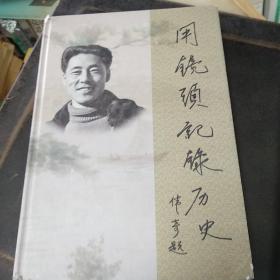 用镜头记录历史
伟奇题